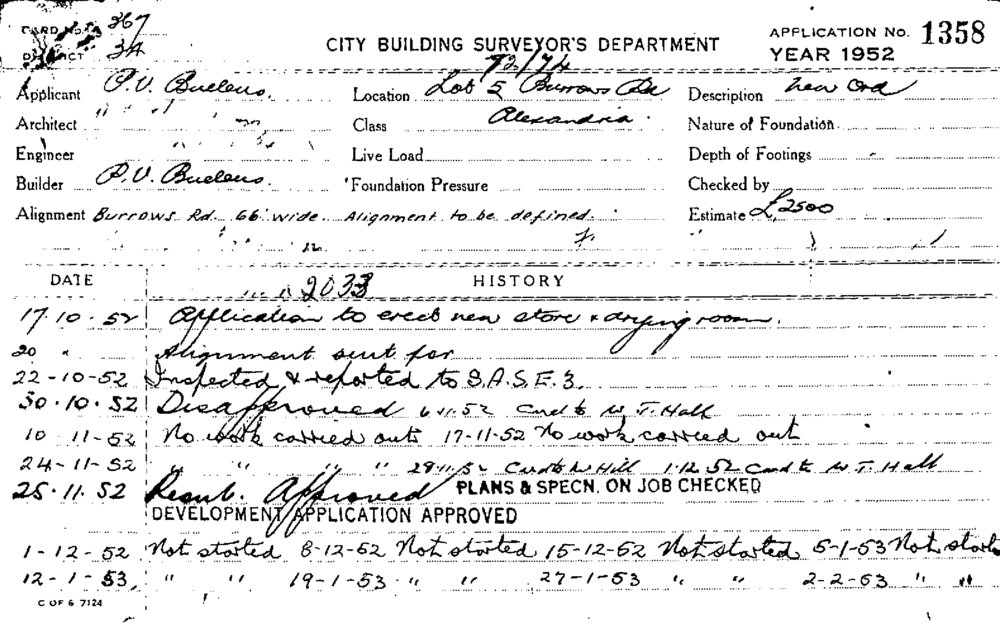 CARD No. 367
DISTRICT 34
CITY BUILDING SURVEYOR'S DEPARTMENT
APPLICATION No. 1358
YEAR 1952
72/74
Applicant P.V. Buelens Location Lot 5 Burrows Rd Description New
Architect " " Class Alexandria. Nature of Foundation
Engineer Live Load Depth of Footings
Builder P.V. Buelens. Foundation Pressure Checked by
Alignment Burrows Rd. 66' wide. Alignment to be defined. Estimate £2500
DATE HISTORY
2033
17.10.52 Application to erect new store & drying room.
20 " Alignment sent for
22-10-52 Inspected & reported to S.A.S.E.3.
30.10.52 Disapproved 6.11.52 Card to W. T. Hall
10 11-52 No work carried out 17-11-52 No work carried out
24-11-52 " " " 28.11.52 Card to Hill 1.12.52 Card to W. T. Hall
25.11.52 Resub. Approved PLANS & SPECN. ON JOB CHECKED
DEVELOPMENT APPLICATION APPROVED
1-12-52 Not started 8-12-52 Not started 15-12-52 Not started 5-1-53 Not started
12-1-53, " " 19-1-53 " " 27-1-53 " " 2-2-53 " "
C OF S 7124